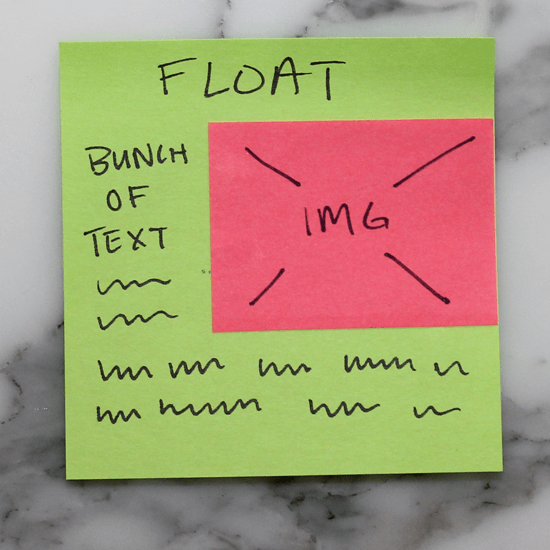 FLOAT
BUNCH
OF
TEXT
IMG